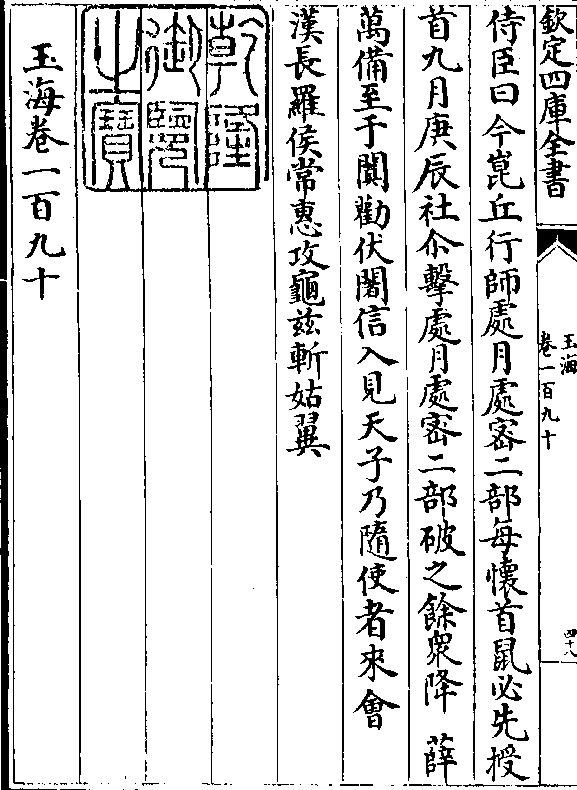 欽定四庫全書
玉海
卷一百九十
四十八
侍臣曰今崑丘行師處月處密二部每懷首鼠必先授
首九月庚辰社尒擊處月處密二部破之餘衆降　薛
萬備至于闐勸伏闍信入見天子乃隨使者來會
漢長羅侯常惠攻龜兹斬姑翼
乾隆
御覽
之寶
玉海卷一百九十